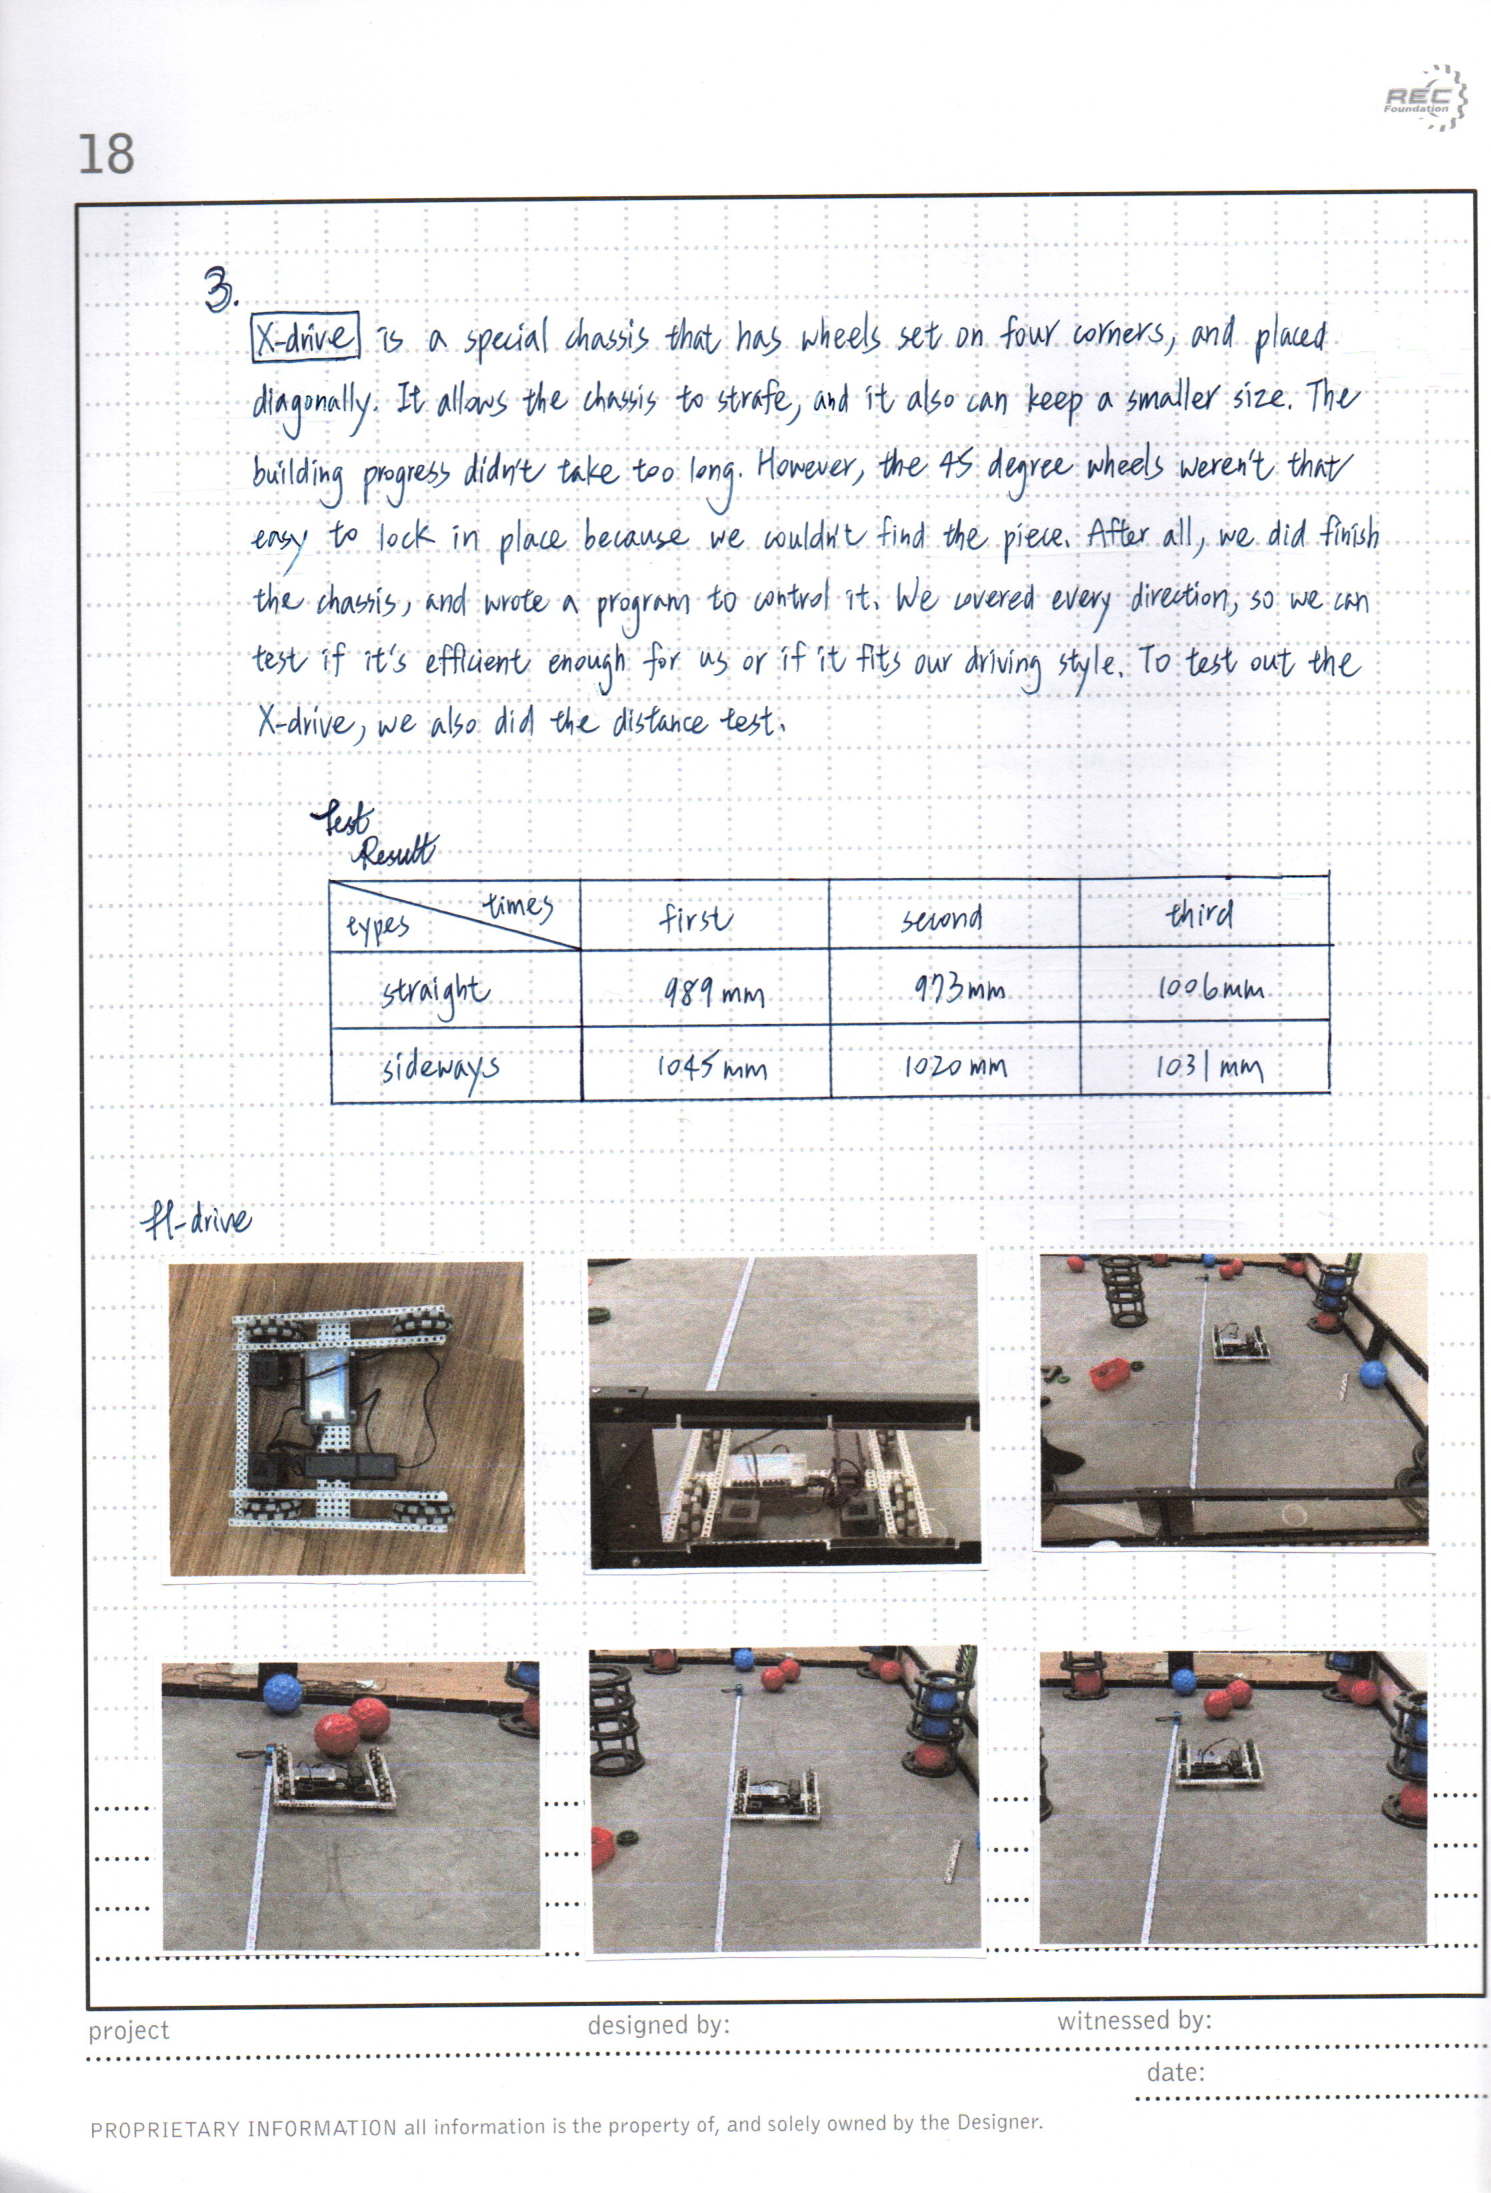 REC
Foundation
18
3.
X-drive is a special chassis that has wheels set on four corners, and placed
diagonally. It allows the chassis to strafe, and it also can keep a smaller size. The
building progress didn't take too long. However, the 45 degree wheels weren't that
easy to lock in place because we couldn't find the piece. After all, we did finish
the chassis, and wrote a program to control it. We covered every direction, so we can
test if it's efficient enough for us or if it fits our driving style. To test out the
X-drive, we also did the distance test.
Test
Result
types times first second third
straight 989mm 973mm 1006mm
sideways 1045mm 1020mm 1031mm
H-drive
project designed by: witnessed by:
date:
PROPRIETARY INFORMATION all information is the property of, and solely owned by the Designer.